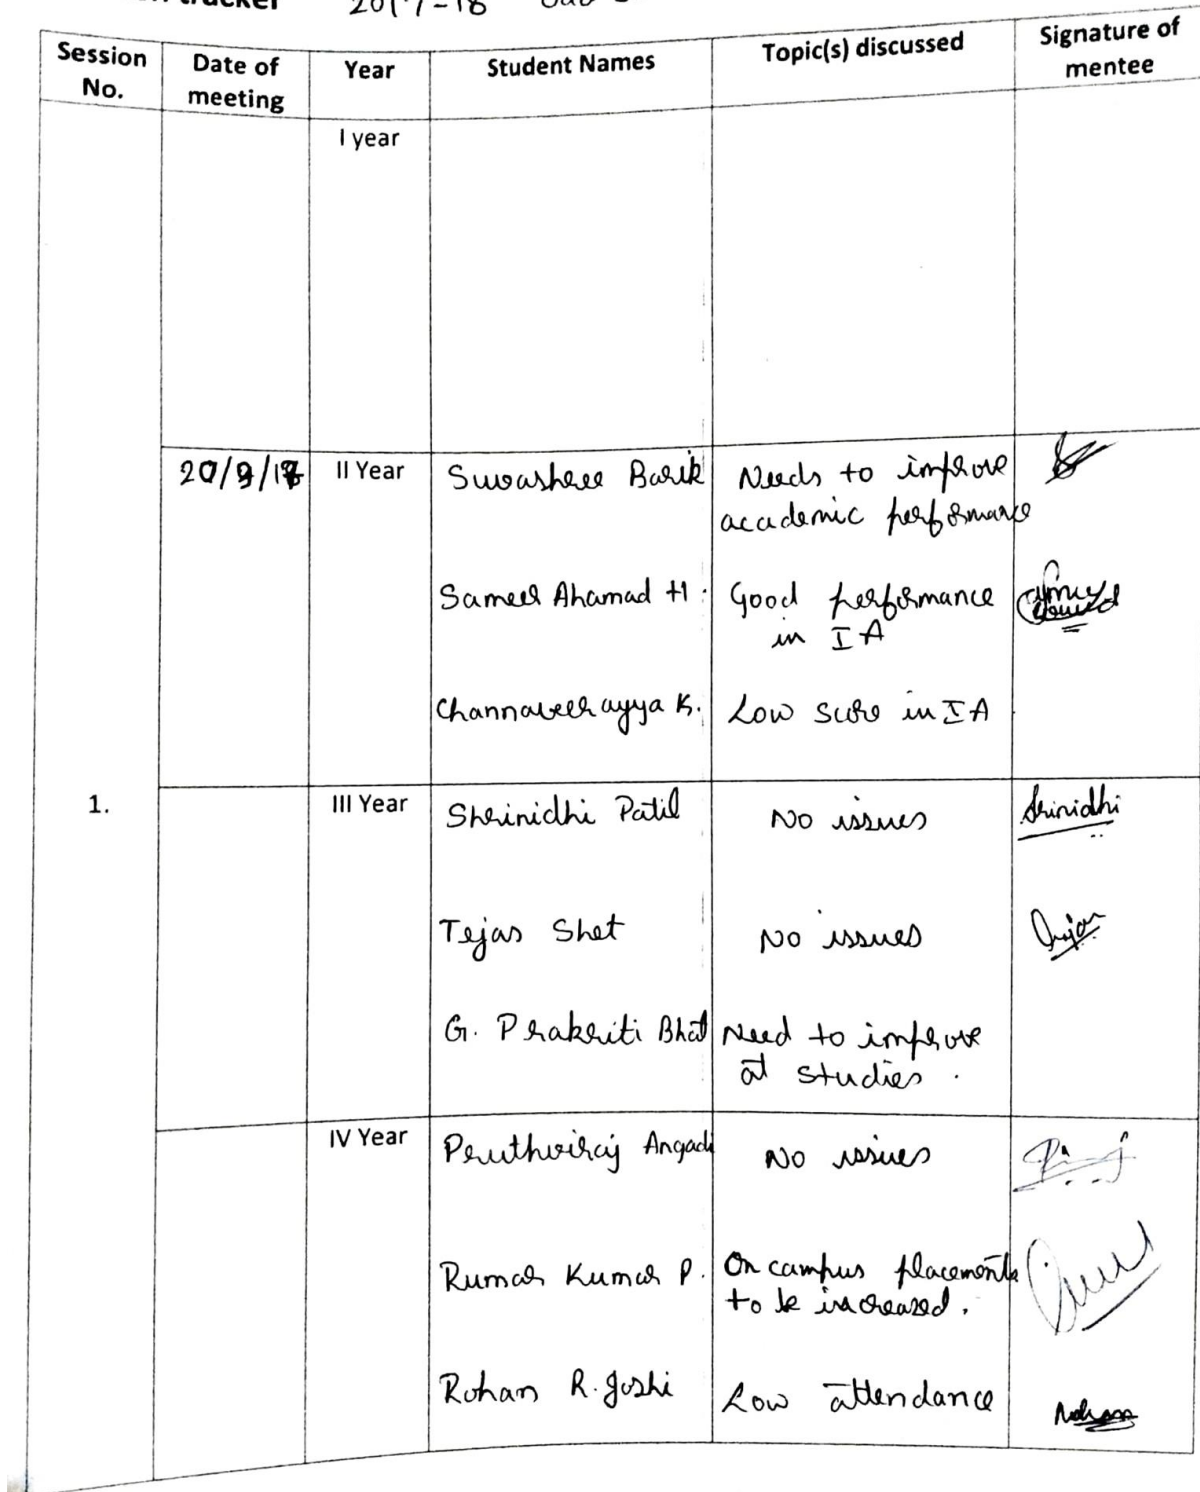 tracker 2017-18
Session No. Date of meeting Year Student Names Topic(s) discussed Signature of mentee
I year
20/9/17 II Year Suvashree Barik Needs to improve
academic performance
Sameer Ahamad H. Good performance
in IA
Channaveerayya K. Low score in IA
1. III Year Shrinidhi Patil No issues Srinidhi
Tejas Shet No issues
G. Prakriti Bhat Need to improve
at studies.
IV Year Pruthviraj Angadi No issues
Kumar P. On campus placements
to be increased.
Rohan R. Joshi Low attendance Rohan